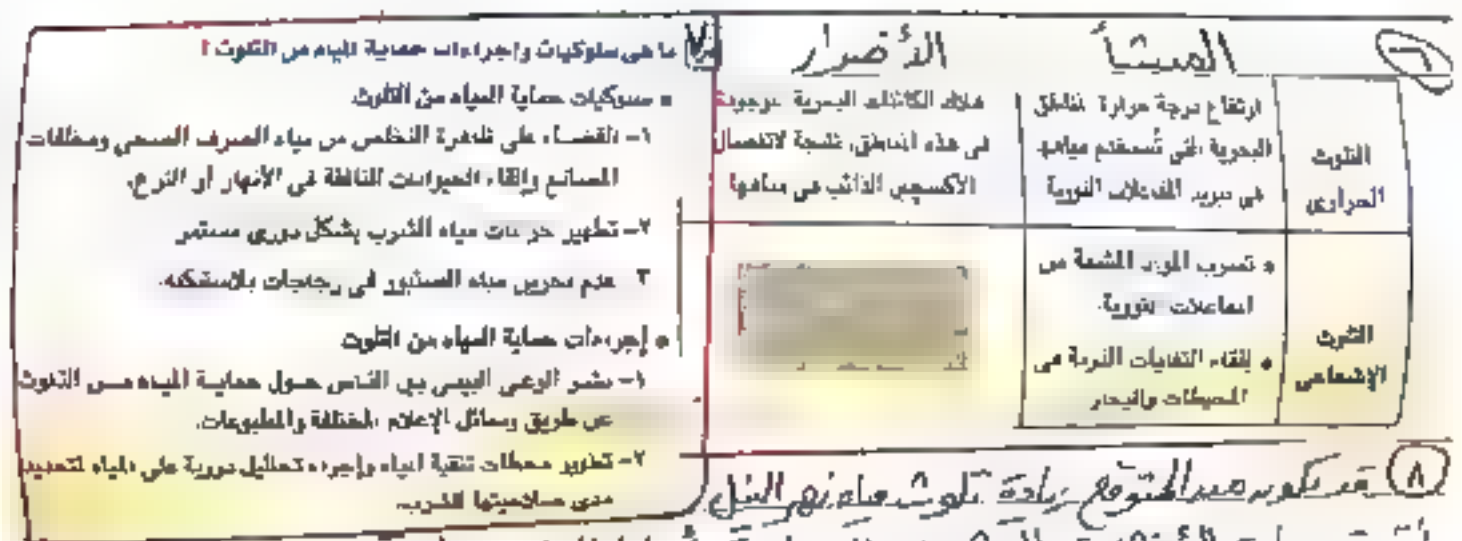 ٦
المنشأ
الأضرار
التلوث
الحراري
ارتفاع درجة حرارة المناطق
البحرية التى تُستخدم مياهها
فى تبريد المفاعلات النووية
هلاك الكائنات البحرية الموجودة
فى هذه المناطق، نتيجة لانفصال
الأكسجين الذائب فى مياهها
التلوث
الإشعاعى
• تسرب المواد المشعة من
المفاعلات النووية.
• إلقاء النفايات الذرية فى
المحيطات والبحار
٧ ما هى سلوكيات وإجراءات حماية المياه من التلوث ؟
• سلوكيات حماية المياه من التلوث
١- القضاء على ظاهرة التخلص من مياه الصرف الصحى ومخلفات
المصانع وإلقاء الحيوانات النافقة فى الأنهار أو الترع.
٢- تطهير خزانات مياه الشرب بشكل دورى مستمر
٣ عدم تخزين مياه الصنبور فى زجاجات بلاستيكية.
• إجراءات حماية المياه من التلوث
١- نشر الوعى البيئى بين الناس حول حماية المياه من التلوث
عن طريق وسائل الإعلام المختلفة والمطبوعات.
٢- تطوير محطات تنقية المياه وإجراء تحاليل دورية على المياه لتحديد
مدى صلاحيتها للشرب.
٨ قد يكون من المتوقع زيادة تلوث مياه نهر النيل